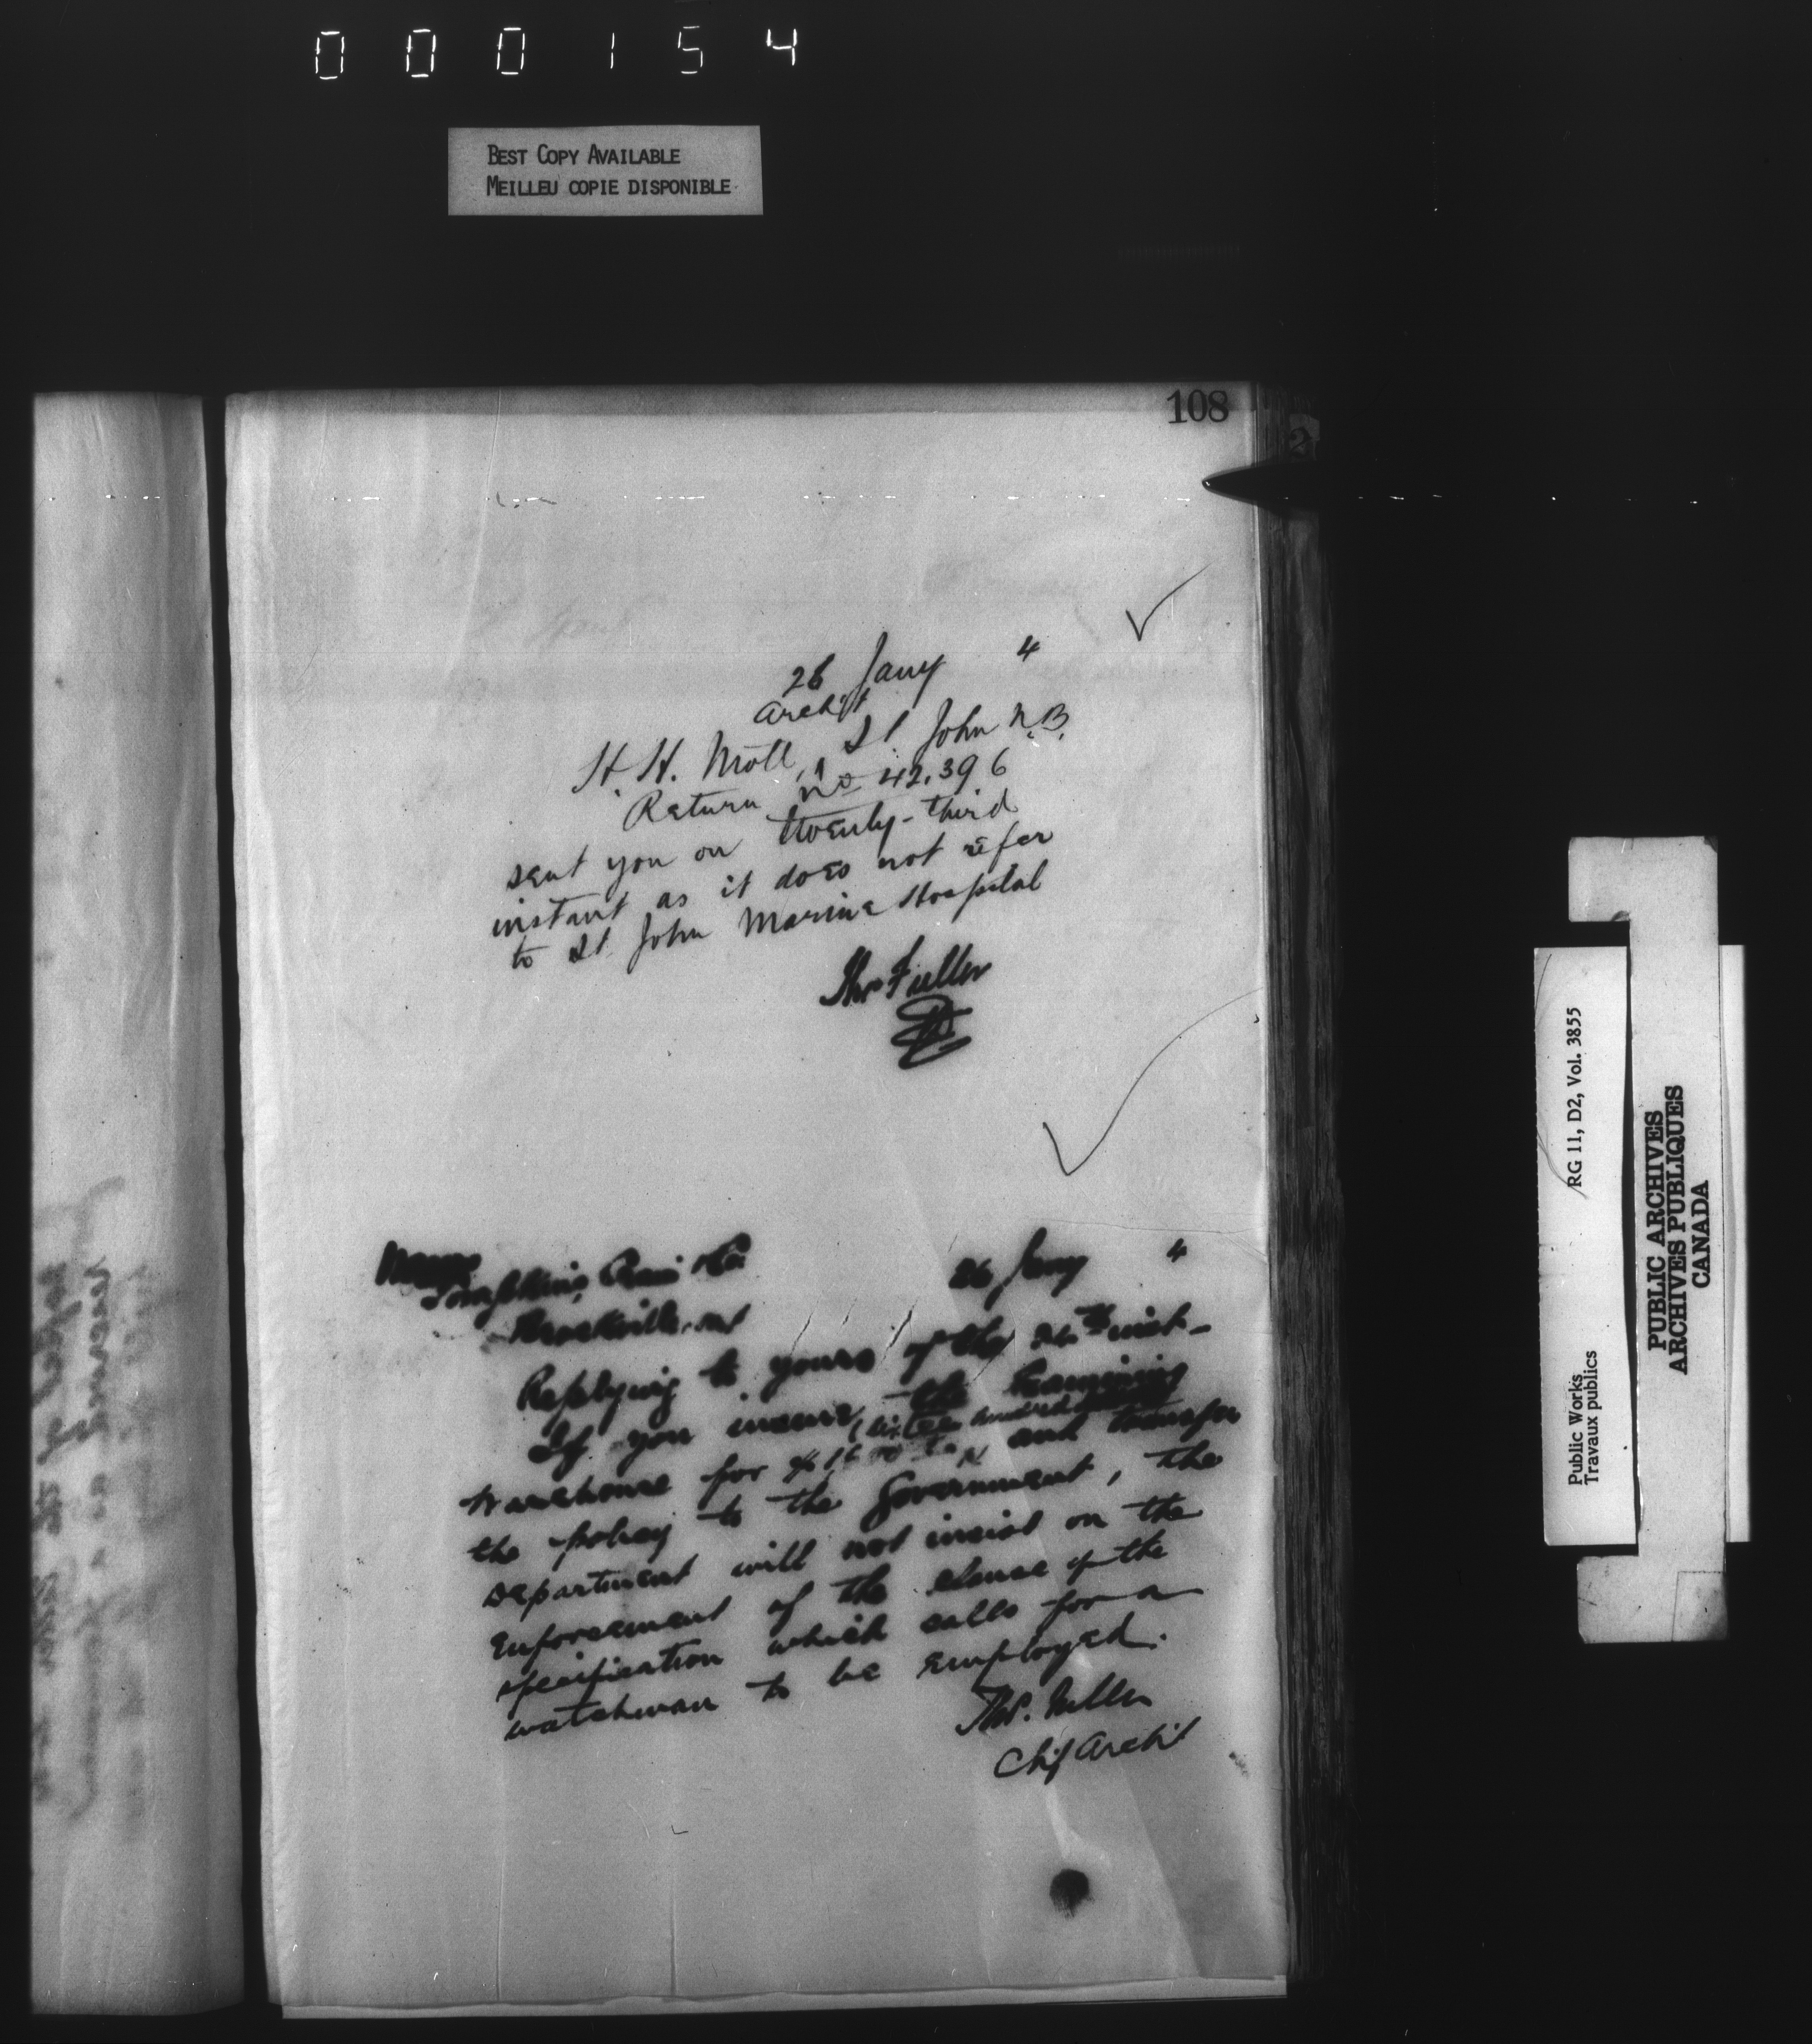 000154
BEST COPY AVAILABLE
MEILLEU COPIE DISPONIBLE
108
26 Jany 4
Archt
H. H. Mott, St John N.B.
Return No 42.396
sent you on twenty-third
instant as it does not refer
to St John Marine Hospital
Thos Fuller
Messrs
26 Jany 4
Brockville, Ont
Replying to yours of the inst-
If you insure the Examining
Warehouse for (sixteen hundred and transfer
the policy to the Government, the
Department will not insist on the
Enforcement of the clause of the
specification which calls for a
watchman to be employed.
Thos. Fuller
Chf Archt
Public Works
Travaux publics
RG 11, D2, Vol. 3855
PUBLIC ARCHIVES
ARCHIVES PUBLIQUES
CANADA